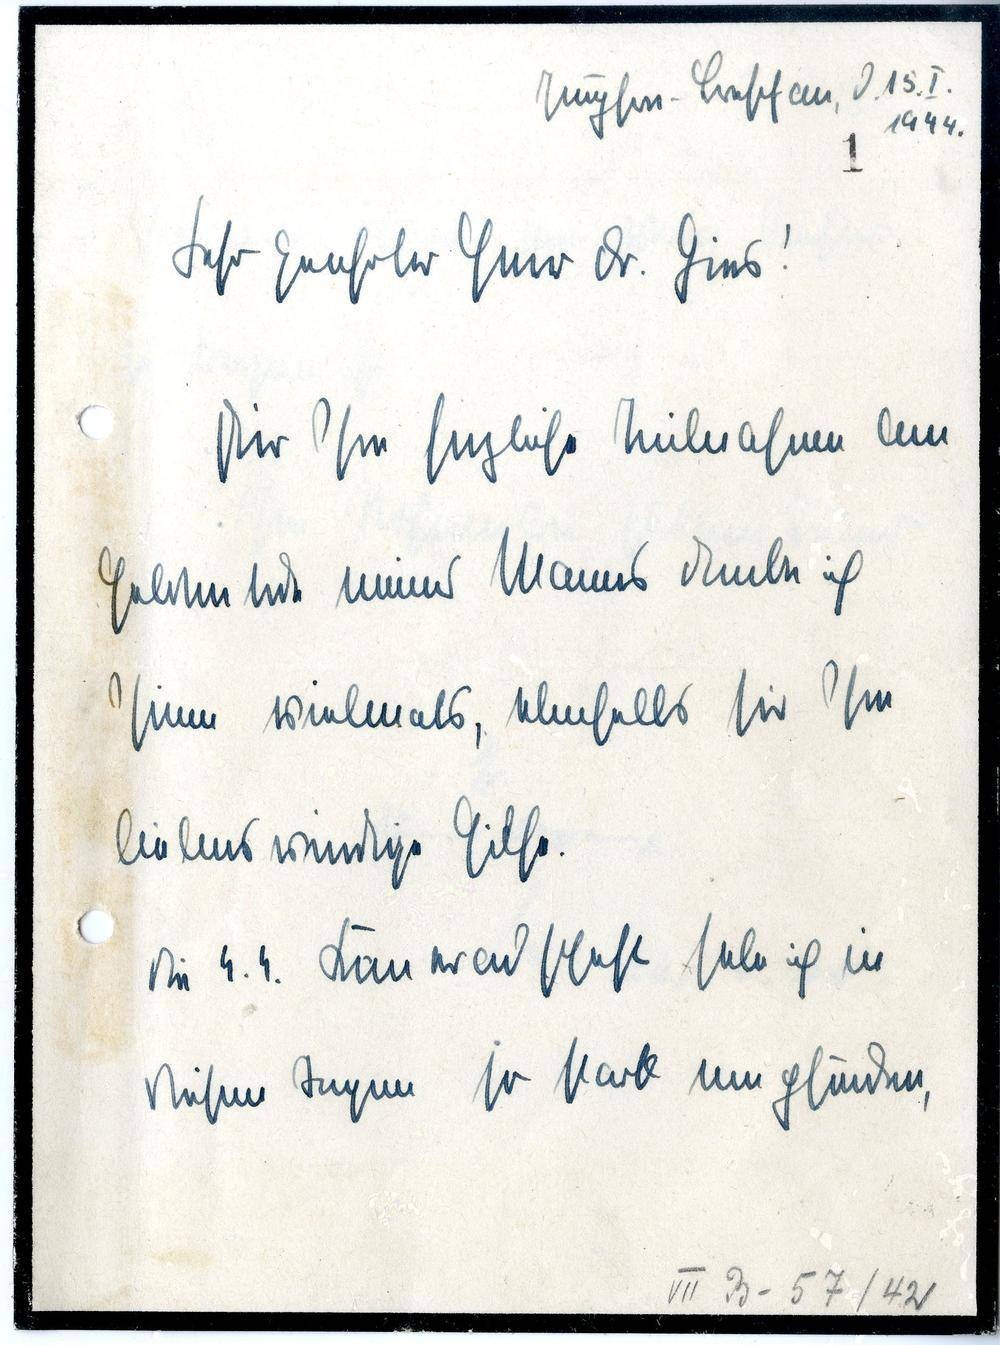 Jungfern-Breschan, d. 15.I.
1944.
1
Sehr geehrter Herr Dr. Gies!
Für Ihre herzliche Teilnahme am
Heldentode meines Mannes danke ich
Ihnen vielmals, ebenfalls für Ihre
liebenswürdige Hilfe.
Die 4.4. Kameradschaft habe ich in
diesen Tagen so stark empfunden,
VII B- 57/42